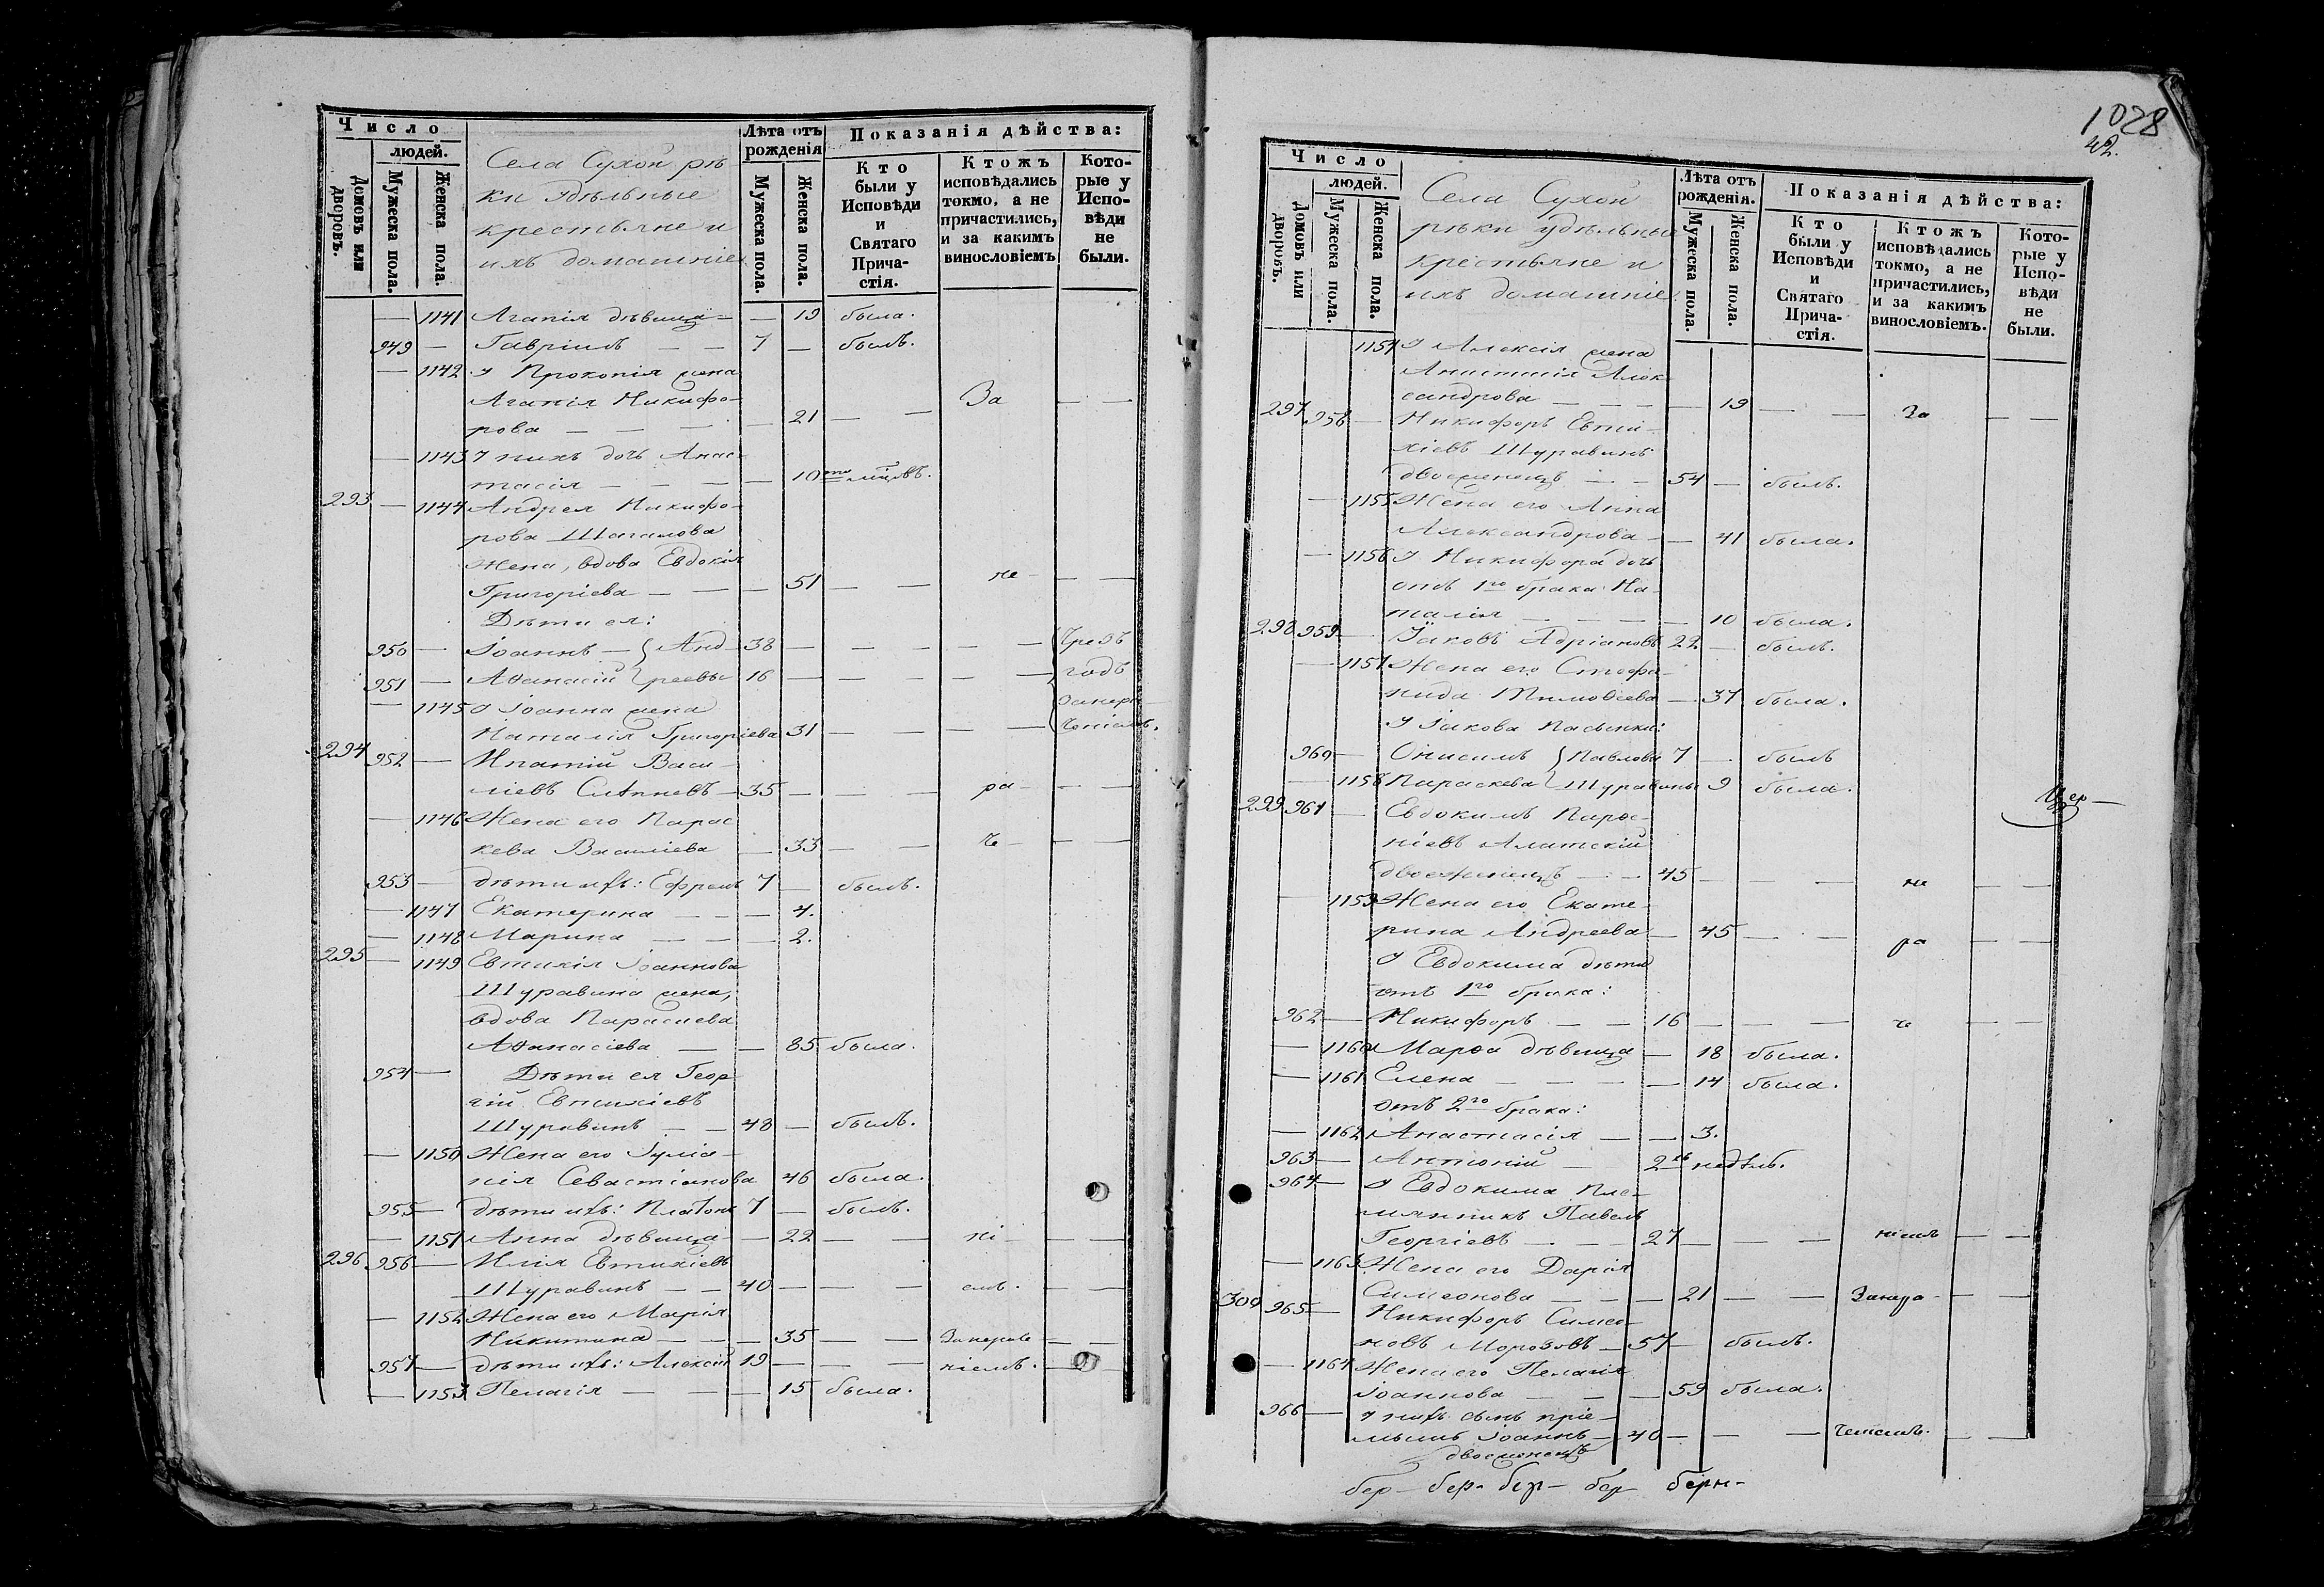 Число
людей.
Домовъ или дворовъ.
Мужеска пола.
Женска пола.
Села Сухой рѣ
ки удѣльные
крестьяне и
ихъ домашніе
Лѣта отъ
рожденія
Мужеска пола.
Женска пола.
Показанія дѣйства:
Кто
были у
Исповѣди
и
Святаго
Прича-
стія.
Ктожъ
исповѣдались
токмо, а не
причастились,
и за какимъ
винословіемъ
Кото-
рые у
Испо-
вѣди
не
были.
— 1141 Агапія дѣвица — — 19 была.
949 — Гавріилъ — — 7 — былъ.
— 1142 У Прокопія жена
Агапія Никифо- За
рова — — — — 21 — —
— 1143 У нихъ дочь Анас-
тасія — — — — 10
293 — 1144 Андрея Никифо-
рова Шагалова
жена, вдова Евдокія
Григоріева — — — 51 — — не — —
Дѣти ея:
950 — Іоаннъ — } Анд- 38 — — — — — Чрезъ
951 — Аѳанасій } реевы 16 — — — — — годъ
— 1145 У Іоанна жена
Наталія Григоріева 31 — — — —
294 952 — Ипатій Васи-
ліевъ — 35 — — — ра — —
— 1146 Жена его Парас
кева Василіева — 33 — — че — —
953 — дѣти ихъ: Ефремъ 7 — былъ.
— 1147 Екатерина — — — 4.
— 1148 Марина — — — 2.
295 — 1149 Евтихія Іоаннова
Шуравина жена,
вдова Параскева
Аѳанасіева — — 85 была.
954 — Дѣти ея Геор
гій Евтихіевъ
Шуравинъ — — 48 — былъ.
— 1150 Жена его Іуліа-
нія Севастіанова 46 была.
955 — дѣти ихъ: Платонъ 7 — былъ.
— 1151 Анна дѣвица — — 22 — — ні — —
296 956 — Илія Евтихіевъ
Шуравинъ — — 40 — — — емъ. — —
— 1152 Жена его Марія
Никитина — — — 35 — — — —
957 — дѣти ихъ: Алексій 19 — — — ніемъ. —
— 1153 Пелагія — — — 15 была.
1028
42.
Число
людей.
Домовъ или дворовъ.
Мужеска пола.
Женска пола.
Села Сухой
рѣки удѣльные
крестьяне и
ихъ домашніе
Лѣта отъ
рожденія.
Мужеска пола.
Женска пола.
Показанія дѣйства:
Кто
были у
Исповѣди
и
Святаго
Прича-
стія.
Ктожъ
исповѣдались
токмо, а не
причастились,
и за какимъ
винословіемъ.
Кото-
рые у
Испо-
вѣди
не
были.
1154 У Алексія жена
Алек
сандрова — — — — 19 — — За — —
297 958 — Никифоръ Евти-
хіевъ Шуравинъ
двоеженецъ — — 54 — былъ.
— 1155 Жена его Анна
Александрова — — 41 была.
— 1156 У Никифора дочь
отъ 1го брака На-
талія — — — — 10 была.
298 959 — Іаковъ Адріановъ 22 — былъ.
— 1157 Жена его Стефа-
нида Тимоѳеева — 37 была.
У Іакова пасынки:
960 — Онисимъ } Павловы 7 — былъ
— 1158 Параскева } Шуравины 9 была.
299 961 — Евдокимъ
Алатскій
двоеженецъ — — 45 — — — не — —
— 1159 Жена его Екате-
рина Андреева — 45 — — ра — —
У Евдокима дѣти
отъ 1го брака:
962 — Никифоръ — — 16 — — — че — —
— 1160 Марѳа дѣвица — 18 была.
— 1161 Елена — — — — 14 была.
отъ 2го брака:
— 1162 Анастасія — — 3.
963 — Антоній — 2хъ недѣль.
964 — У Евдокима пле-
мянникъ Павелъ
Георгіевъ — — — 27 — — — ніемъ — —
— 1163 Жена его Дарія
Симеонова — — — 21 — — — —
300 965 — Никифоръ Симео-
новъ Морозовъ — 57 — былъ.
— 1164 Жена его Пелагія
Іоаннова — — — 59 была.
966 — У нихъ сынъ пріе-
мышъ Іоаннъ — 40 — — — — —
двоеженецъ
бер- бер- бер- бер